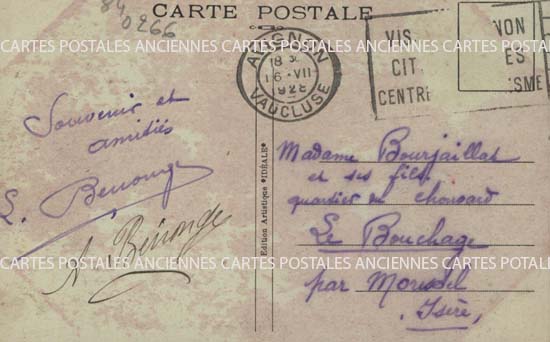 84
0266
CARTE POSTALE
AVIGNON
18
16 · VII
1928
VAUCLUSE
VIS
CIT
CENTRE
VON
ES
ISME
CARTES POSTALES ANCIENNES CARTES POSTALES ANCIENNES CARTES POTALES ANCIENNES
Souvenir et
amitiés
Edition Artistique "IDÉALE"
Madame Bourjaillat
et ses fils
quartier du
Le Bouchage
par Morestel
Isère
CARTES POSTALES ANCIENNES CARTES POSTALES ANCIENNES CARTES POTALES ANCIENNES